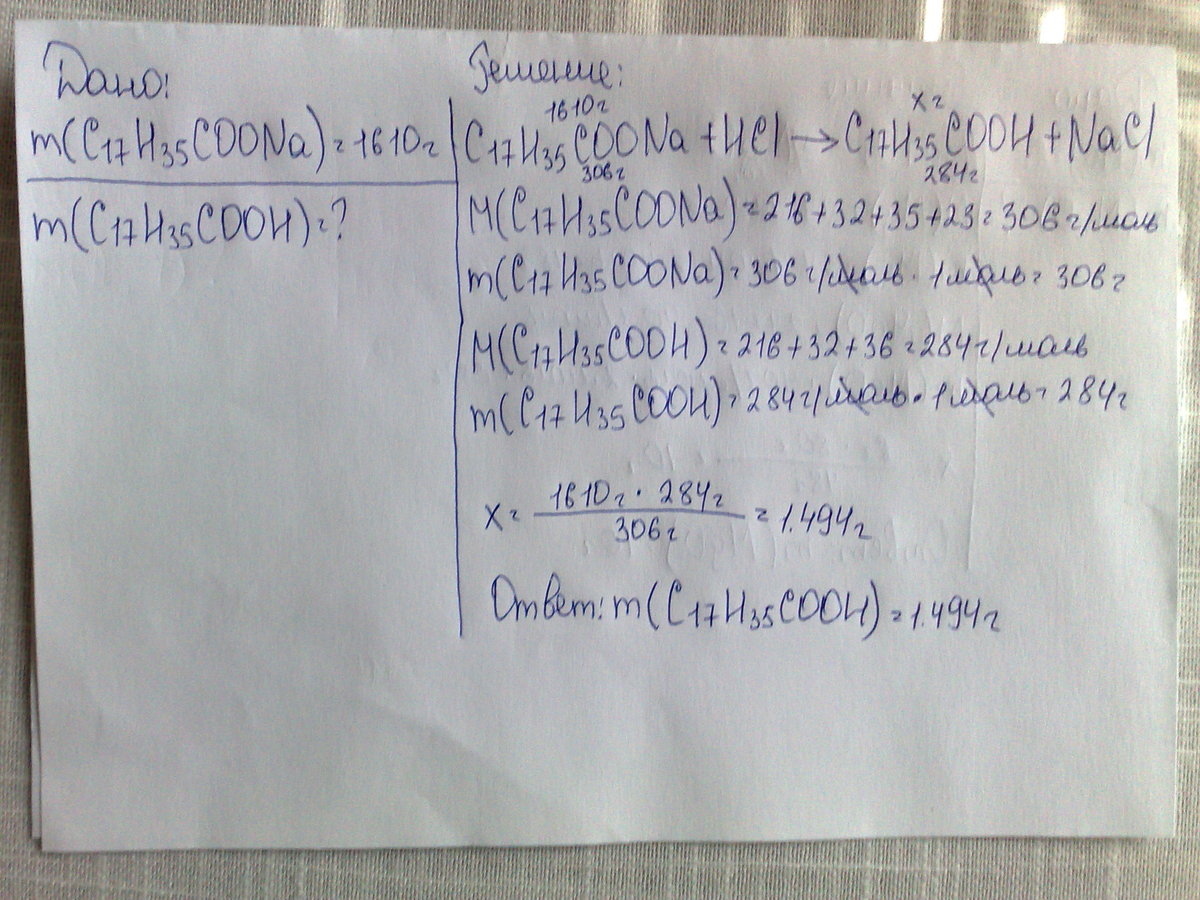 Дано:
m(C17H35COONa)=1610г
m(C17H35COOH)=?
Решение:
1610г x г
C17H35COONa + HCl → C17H35COOH + NaCl
306г 284г
M(C17H35COONa)=216+32+35+23=306 г/моль
m(C17H35COONa)=306 г/моль · 1 моль = 306 г
M(C17H35COOH)=216+32+36=284 г/моль
m(C17H35COOH)=284 г/моль · 1 моль = 284 г
x = 1610г · 284г / 306г = 1.494 г
Ответ: m(C17H35COOH)=1.494 г